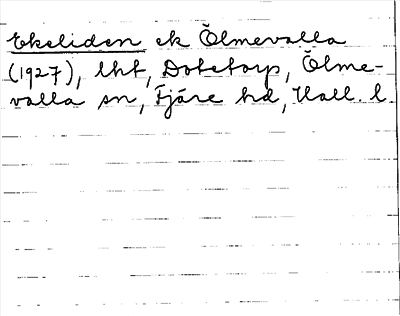 Ekeliden ek Ölmevalla
(1927), lht, Dotetorp, Ölme-
valla sn, Fjäre hd, Hall. l.